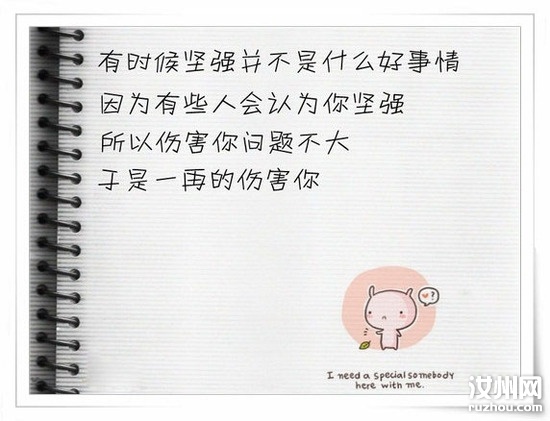 有时候坚强并不是什么好事情
因为有些人会认为你坚强
所以伤害你问题不大
于是一再的伤害你
?
I need a special somebody
here with me.
汝州网
ruzhou.com